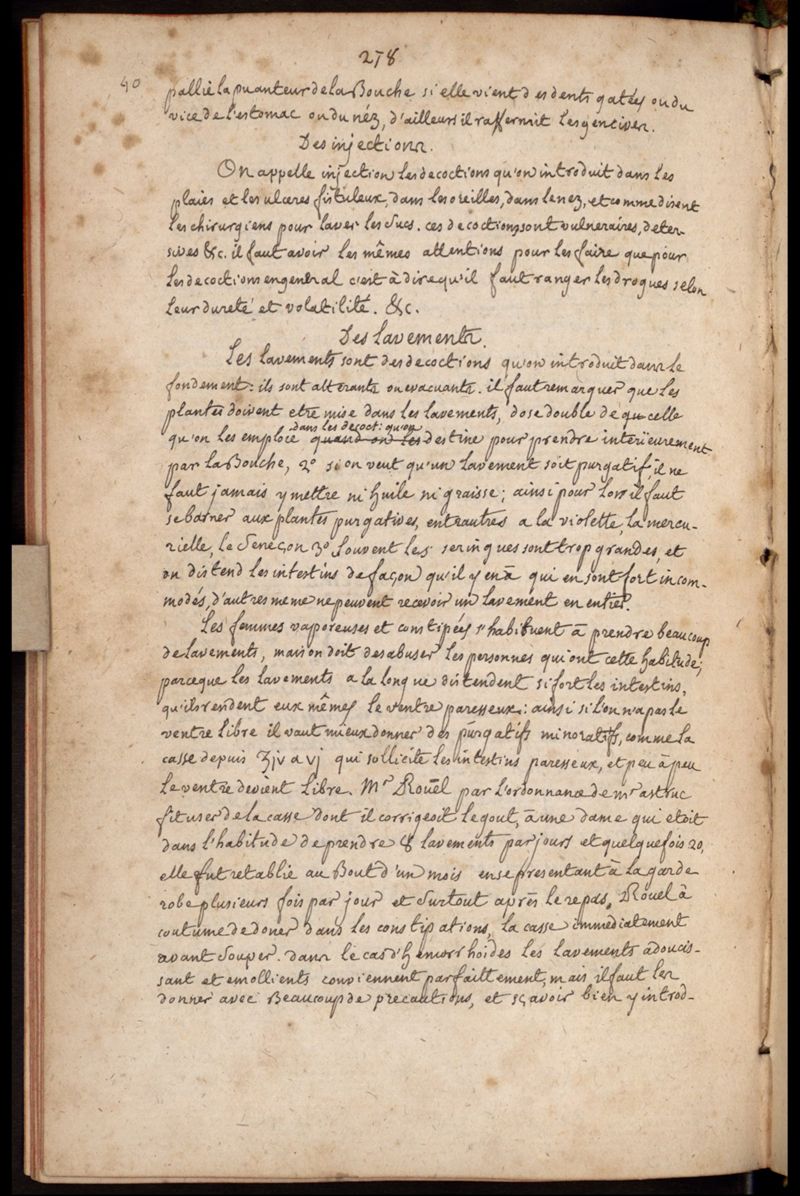 278
40
pallie la puanteur de la Bouche si elle vient des dents gatées ou du
vice de l'estomac ou du néz, d'ailleurs il raffermit les gencives.
Des injections.
On appelle injection les decoctions qu'on introduit dans les
plaies et les ulceres fistuleux, dans les oreilles, dans le nez, et comme disent
les chirurgiens pour laver les sucs. ces decoctions sont vulneraires, deter
sives &c. il faut avoir les mêmes attentions pour les faire que pour
les decoctions en genéral c'est à dire qu'il faut ranger les drogues selon
leur dureté et volatilité. &c.
Des lavements.
Les lavements sont des decoctions qu'on introduit dans le
fondement: ils sont alterants ou evacuants. il faut remarquer que les
plantes doivent etre mise dans les lavements, dose double de celle
dans les decoct: qu'on
qu'on les emploie quand on les destine pour prendre interieurement
par la Bouche, 2º si on veut qu'un lavement soit purgatif, il ne
faut jamais y mettre ni huile ni graisse; ainsi pour lors il faut
se borner aux plantes purgatives, entr'autres a la violette, la mercu-
rielle, le Seneçon 3º souvent les seringues sont trop grandes, et
on distend les intestins de façon qu'il y en à qui en sont fort incom-
modés, d'autres meme ne peuvent recevoir un lavement en entier.
Les femmes vaporeuses et constipées s'habituent à prendre beaucoup
de lavements, mais on doit desabuser les personnes qui ont cette habitude;
parceque les lavements a la longue distendent si fort les intestins,
qu'ils rendent eux mêmes le ventre paresseux: ainsi si l'on n'a pas le
ventre libre il vaut mieux donner des purgatifs minoratifs, comme la
casse depuis ʒjv a vj qui sollicite les intestins paresseux, et peu à peu
le ventre devient libre. Mr Rouël par l'ordonnance de mr astruc
fit user de la casse dont il corrigeoit le gout, à une dame qui etoit
dans l'habitude de prendre 8 lavements par jours et quelquefois 20,
elle fut retablie au Bout d'un mois en se presentant à la garde
robe plusieurs fois par jour et surtout après le repas. Rouel à
coutume de doner dans les constipations, la casse immediatement
avant souper. dans le cas d'hemorrhoides les lavements adoucis-
sant et emollients conviennent parfaittement, mais il faut les
donner avec Beaucoup de precautions, et sçavoir bien y introd-